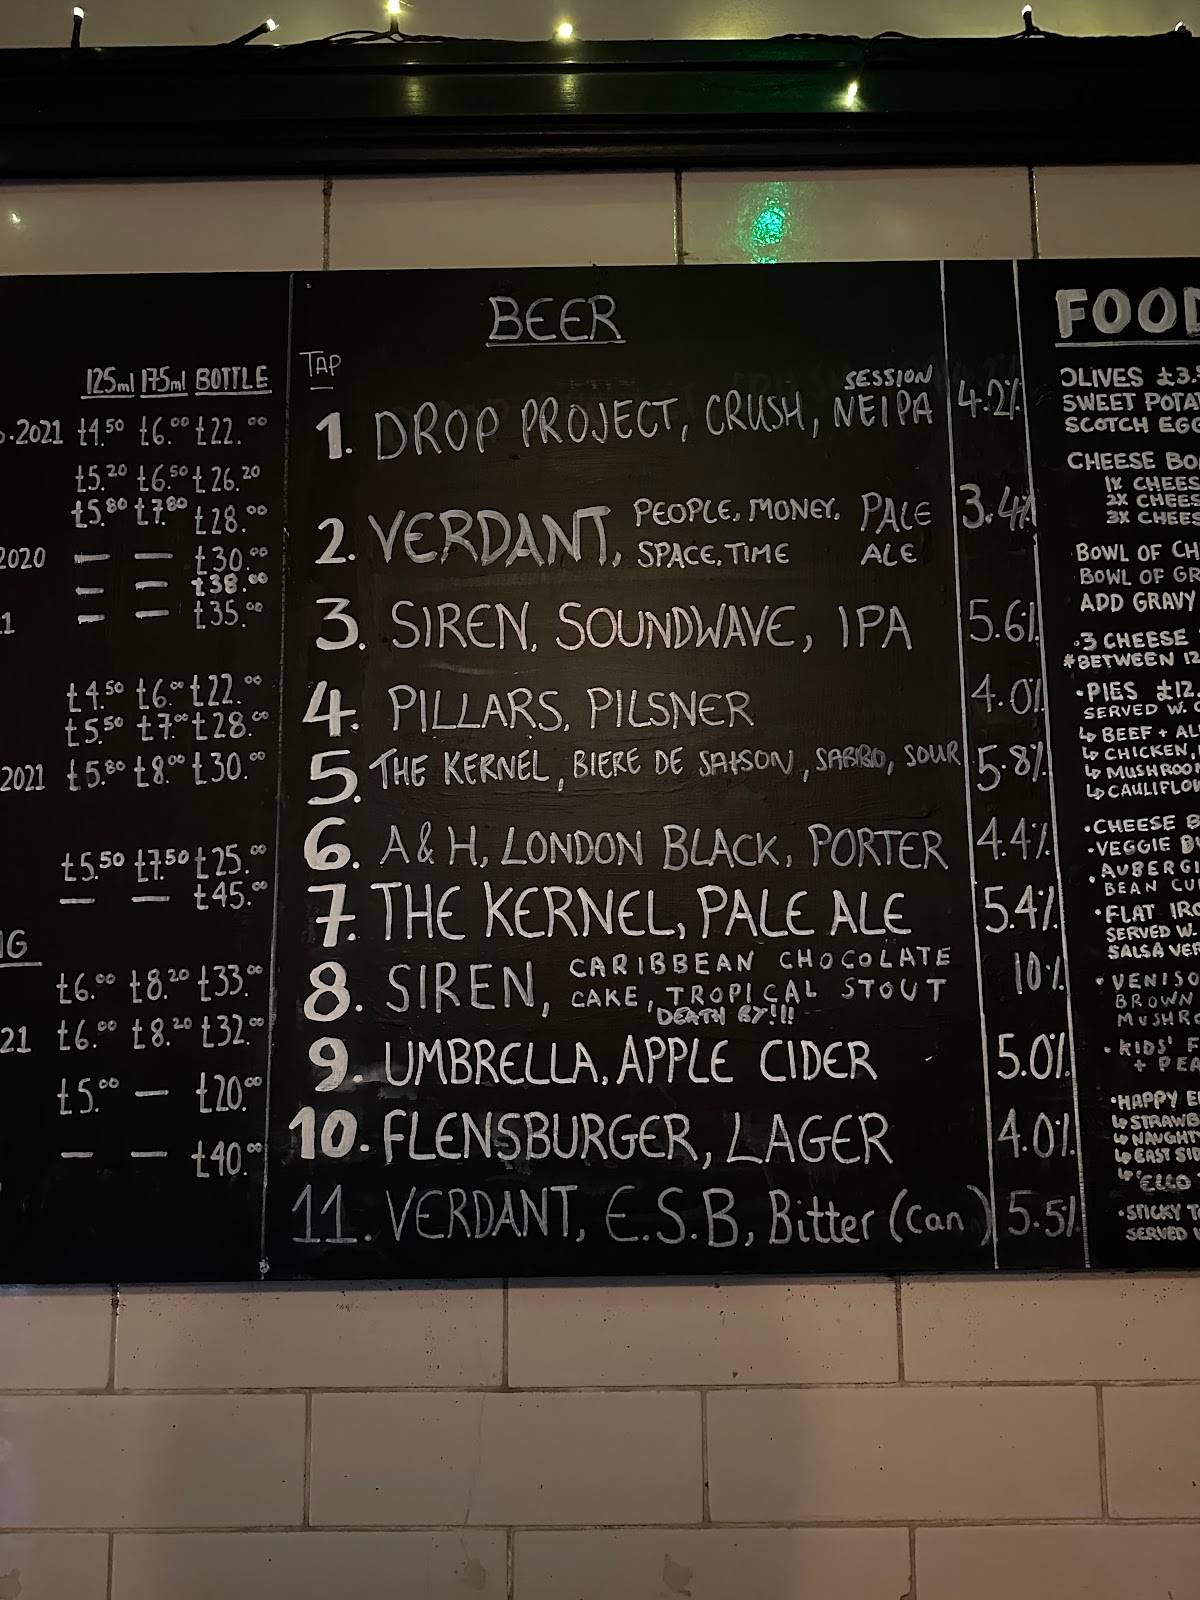 125ml 175ml BOTTLE
.2021 £4.50 £6.00 £22.00
£5.20 £6.50 £26.20
£5.80 £7.80 £28.00
2020 — — £30.00
— — £38.00
— — £35.00
£4.50 £6.00 £22.00
£5.50 £7.00 £28.00
2021 £5.80 £8.00 £30.00
£5.50 £7.50 £25.00
— — £45.00
£6.00 £8.20 £33.00
21 £6.00 £8.20 £32.00
£5.00 — £20.00
— — £40.00
BEER
TAP
1. DROP PROJECT, CRUSH, SESSION NEIPA 4.2%
2. VERDANT, PEOPLE, MONEY, SPACE, TIME PALE ALE 3.4%
3. SIREN, SOUNDWAVE, IPA 5.6%
4. PILLARS, PILSNER 4.0%
5. THE KERNEL, BIERE DE SAISON, SABRO, SOUR 5.8%
6. A & H, LONDON BLACK, PORTER 4.4%
7. THE KERNEL, PALE ALE 5.4%
8. SIREN, CARIBBEAN CHOCOLATE CAKE, TROPICAL STOUT 10%
DEATH BY!!!
9. UMBRELLA, APPLE CIDER 5.0%
10. FLENSBURGER, LAGER 4.0%
11. VERDANT, E.S.B, Bitter (Can) 5.5%
FOOD
OLIVES £3.
SWEET POTA
SCOTCH EGG
CHEESE BO
1X CHEES
2X CHEES
3X CHEES
BOWL OF CH
BOWL OF GR
ADD GRAVY
3 CHEESE
*BETWEEN 12
•PIES £12.
SERVED W.
↳ BEEF + AL
↳ CHICKEN
↳ MUSHROO
↳ CAULIFLOW
•CHEESE B
•VEGGIE BU
•AUBERGI
BEAN CU
•FLAT IRO
SERVED W.
SALSA VER
•VENISO
BROWN
MUSHRO
•KIDS' F
+ PEA
•HAPPY E
↳ STRAWB
↳ NAUGHT
↳ EAST SID
↳ 'ELLO
•STICKY T
SERVED